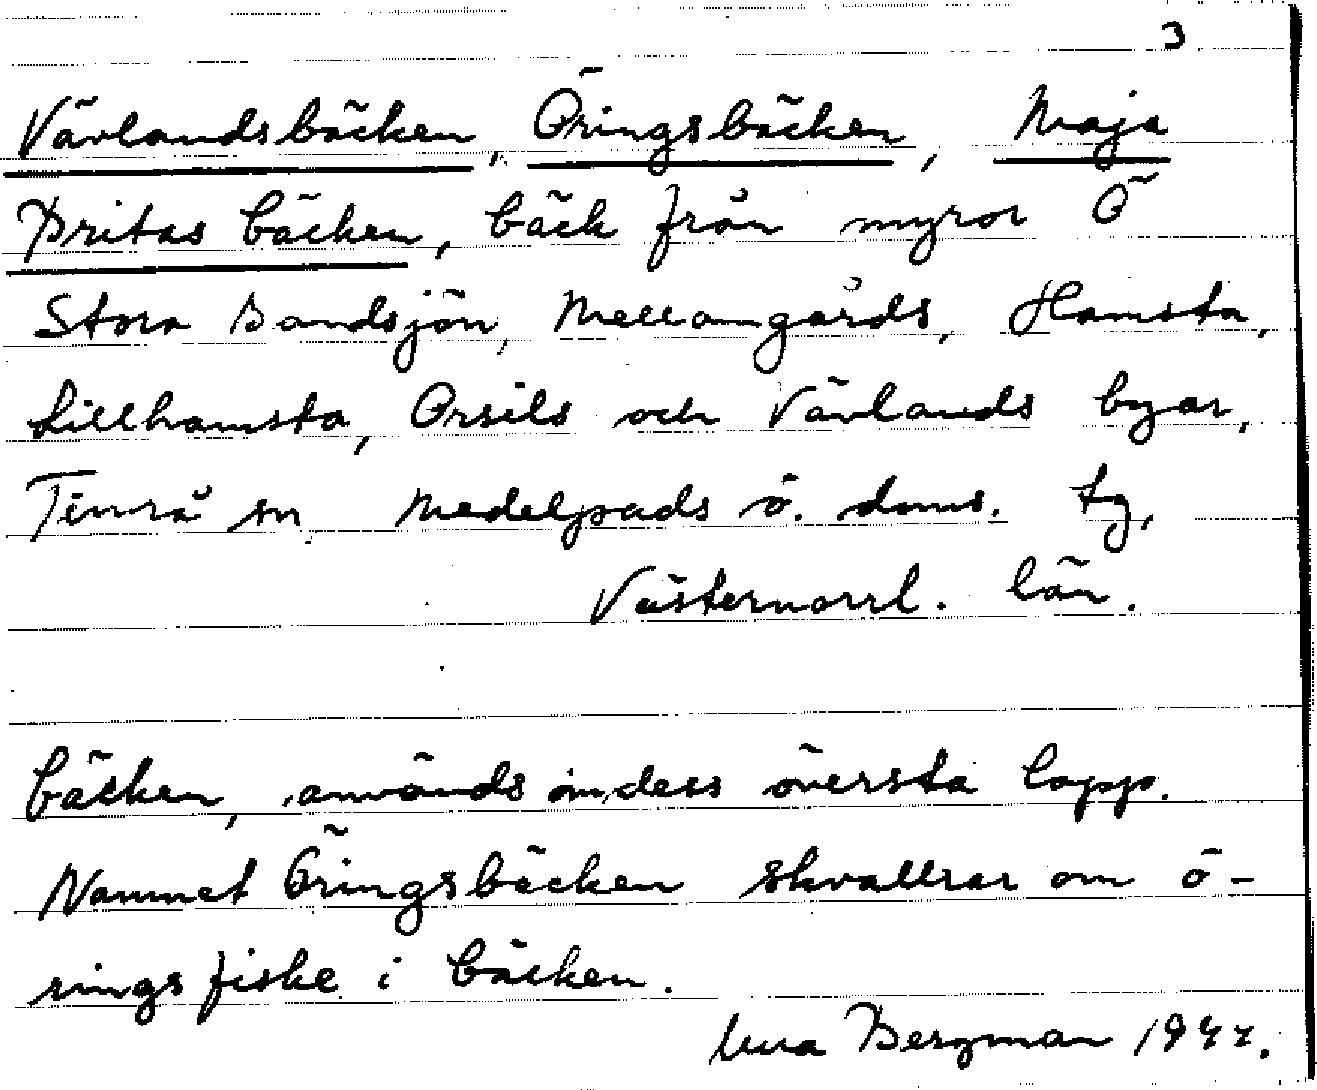 3
Vävlandsbäcken, Öringsbäcken, Maja
Britas bäcken, bäck från myror Ö
Stora Sandsjön, Mellangårds, Hamsta,
Lillhamsta, Orsils och Vävlands byar,
Timrå sn Medelpads ö. doms. tg,
Västernorrl. län.
bäcken, används om dess översta lopp.
Namnet Öringsbäcken skvallrar om ö-
ringsfiske i bäcken.
Bergman